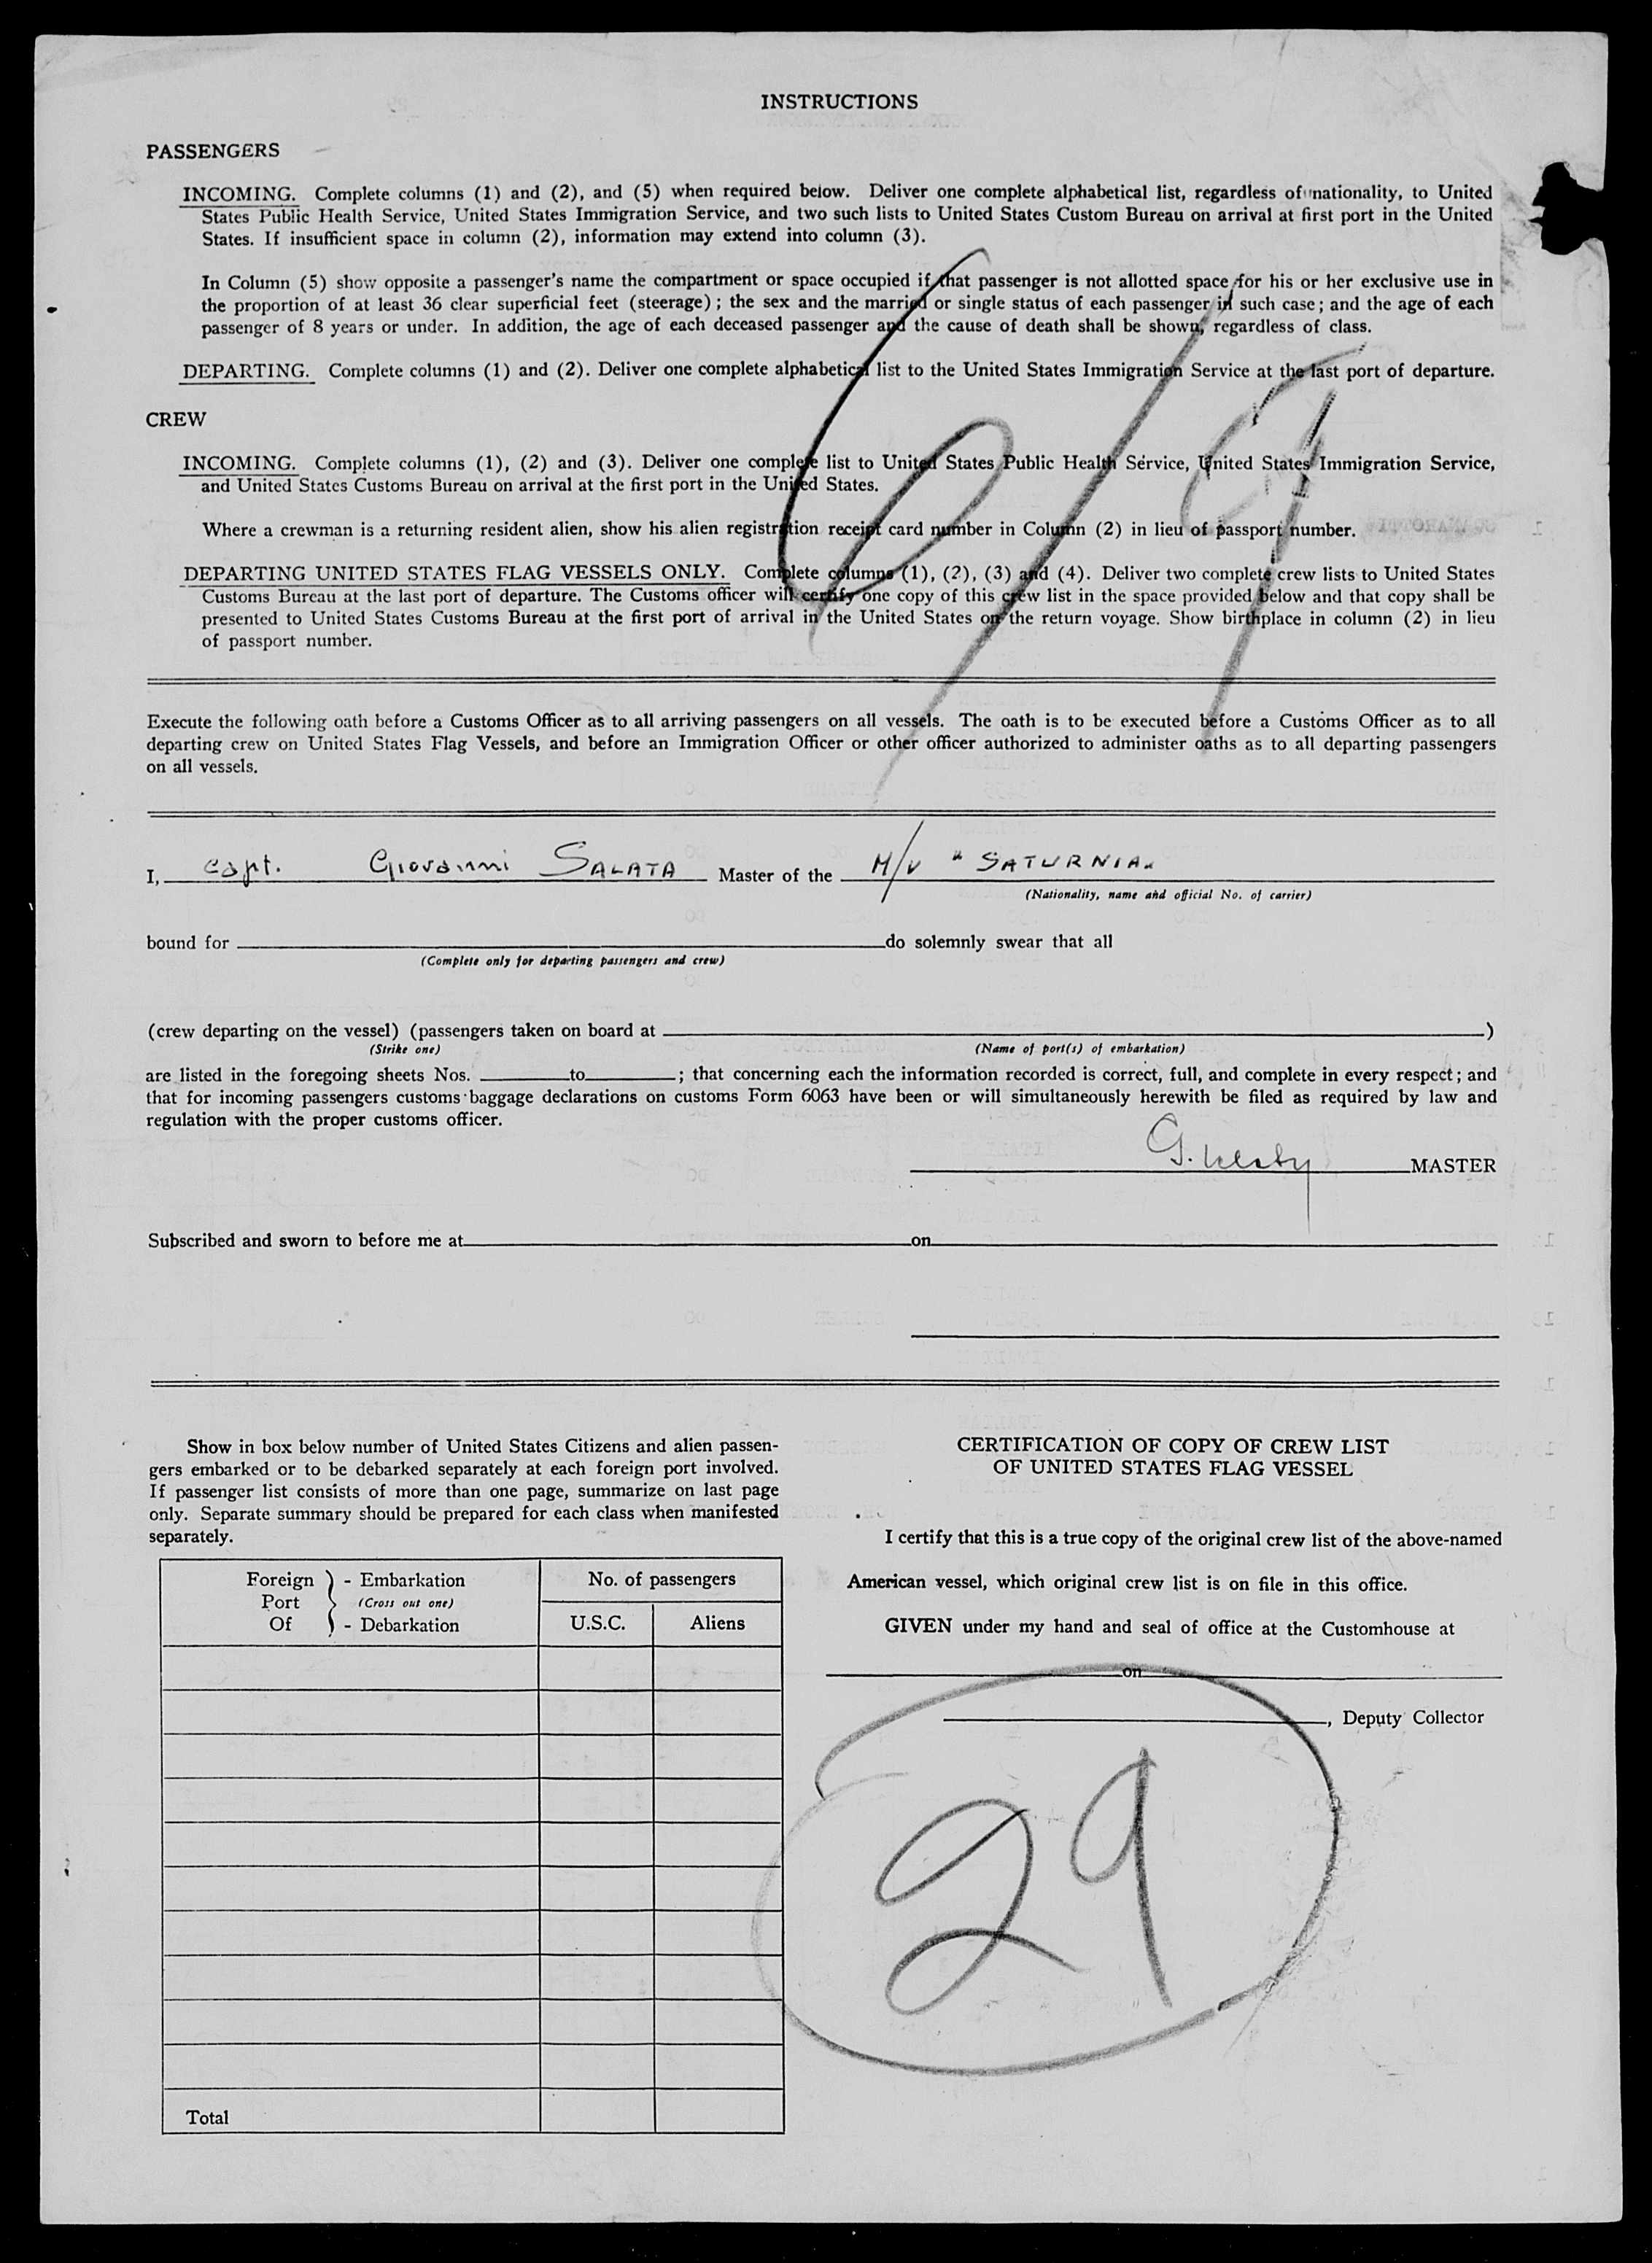 INSTRUCTIONS
PASSENGERS
INCOMING. Complete columns (1) and (2), and (5) when required below. Deliver one complete alphabetical list, regardless of nationality, to United
States Public Health Service, United States Immigration Service, and two such lists to United States Custom Bureau on arrival at first port in the United
States. If insufficient space in column (2), information may extend into column (3).
In Column (5) show opposite a passenger's name the compartment or space occupied if that passenger is not allotted space for his or her exclusive use in
the proportion of at least 36 clear superficial feet (steerage); the sex and the married or single status of each passenger in such case; and the age of each
passenger of 8 years or under. In addition, the age of each deceased passenger and the cause of death shall be shown, regardless of class.
DEPARTING. Complete columns (1) and (2). Deliver one complete alphabetical list to the United States Immigration Service at the last port of departure.
CREW
INCOMING. Complete columns (1), (2) and (3). Deliver one complete list to United States Public Health Service, United States Immigration Service,
and United States Customs Bureau on arrival at the first port in the United States.
Where a crewman is a returning resident alien, show his alien registration receipt card number in Column (2) in lieu of passport number.
DEPARTING UNITED STATES FLAG VESSELS ONLY. Complete columns (1), (2), (3) and (4). Deliver two complete crew lists to United States
Customs Bureau at the last port of departure. The Customs officer will certify one copy of this crew list in the space provided below and that copy shall be
presented to United States Customs Bureau at the first port of arrival in the United States on the return voyage. Show birthplace in column (2) in lieu
of passport number.
Execute the following oath before a Customs Officer as to all arriving passengers on all vessels. The oath is to be executed before a Customs Officer as to all
departing crew on United States Flag Vessels, and before an Immigration Officer or other officer authorized to administer oaths as to all departing passengers
on all vessels.
I, Capt. Giovanni SALATA Master of the M/V "SATURNIA"
(Nationality, name and official No. of carrier)
bound for do solemnly swear that all
(Complete only for departing passengers and crew)
(crew departing on the vessel) (passengers taken on board at )
(Strike one) (Name of port(s) of embarkation)
are listed in the foregoing sheets Nos. to ; that concerning each the information recorded is correct, full, and complete in every respect; and
that for incoming passengers customs baggage declarations on customs Form 6063 have been or will simultaneously herewith be filed as required by law and
regulation with the proper customs officer.
G. MASTER
Subscribed and sworn to before me at on
Show in box below number of United States Citizens and alien passen-
gers embarked or to be debarked separately at each foreign port involved.
If passenger list consists of more than one page, summarize on last page
only. Separate summary should be prepared for each class when manifested
separately.
Foreign - Embarkation No. of passengers
Port (Cross out one)
Of - Debarkation U.S.C. Aliens
Total
CERTIFICATION OF COPY OF CREW LIST
OF UNITED STATES FLAG VESSEL
I certify that this is a true copy of the original crew list of the above-named
American vessel, which original crew list is on file in this office.
GIVEN under my hand and seal of office at the Customhouse at
on
, Deputy Collector
29